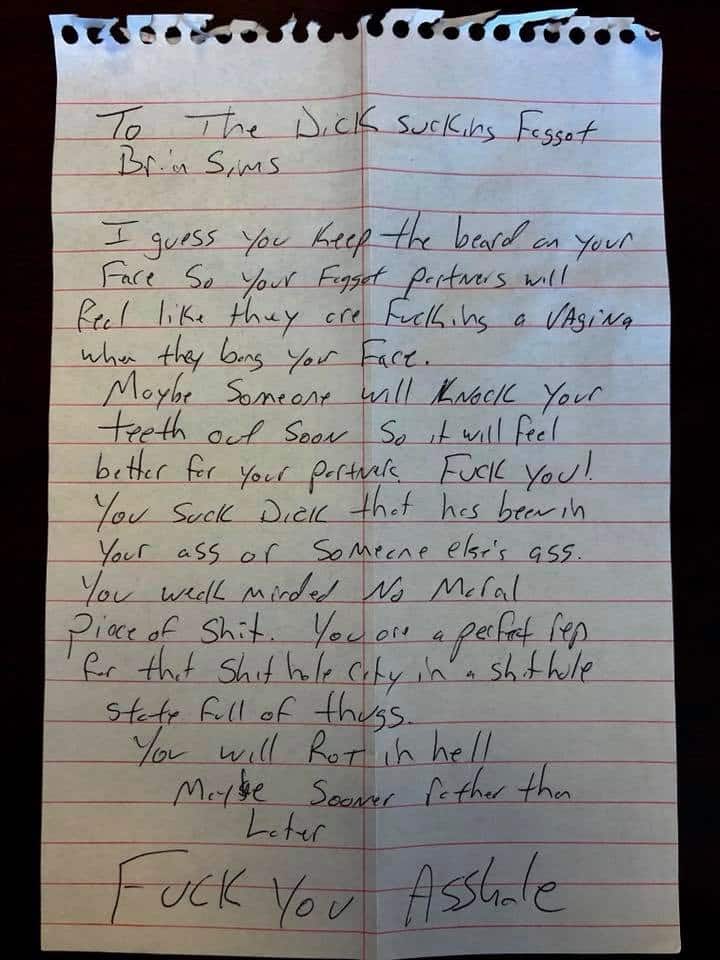 To The Dick sucking Faggot
Brian Sims
I guess you keep the beard on your
Face So your Faggot partners will
feel like they are Fucking a VAgiNa
when they bang your Face.
Maybe Someone will KNock your
teeth out Soon So it will feel
better for your partners. Fuck you!
You Suck Dick that has been in
your ass or Someone else's ass.
You weak minded No Moral
piece of Shit. You are a perfect rep
for that Shit hole City in a shithole
state full of thugs.
You will Rot in hell
Maybe Sooner rather than
Later
Fuck You Asshole